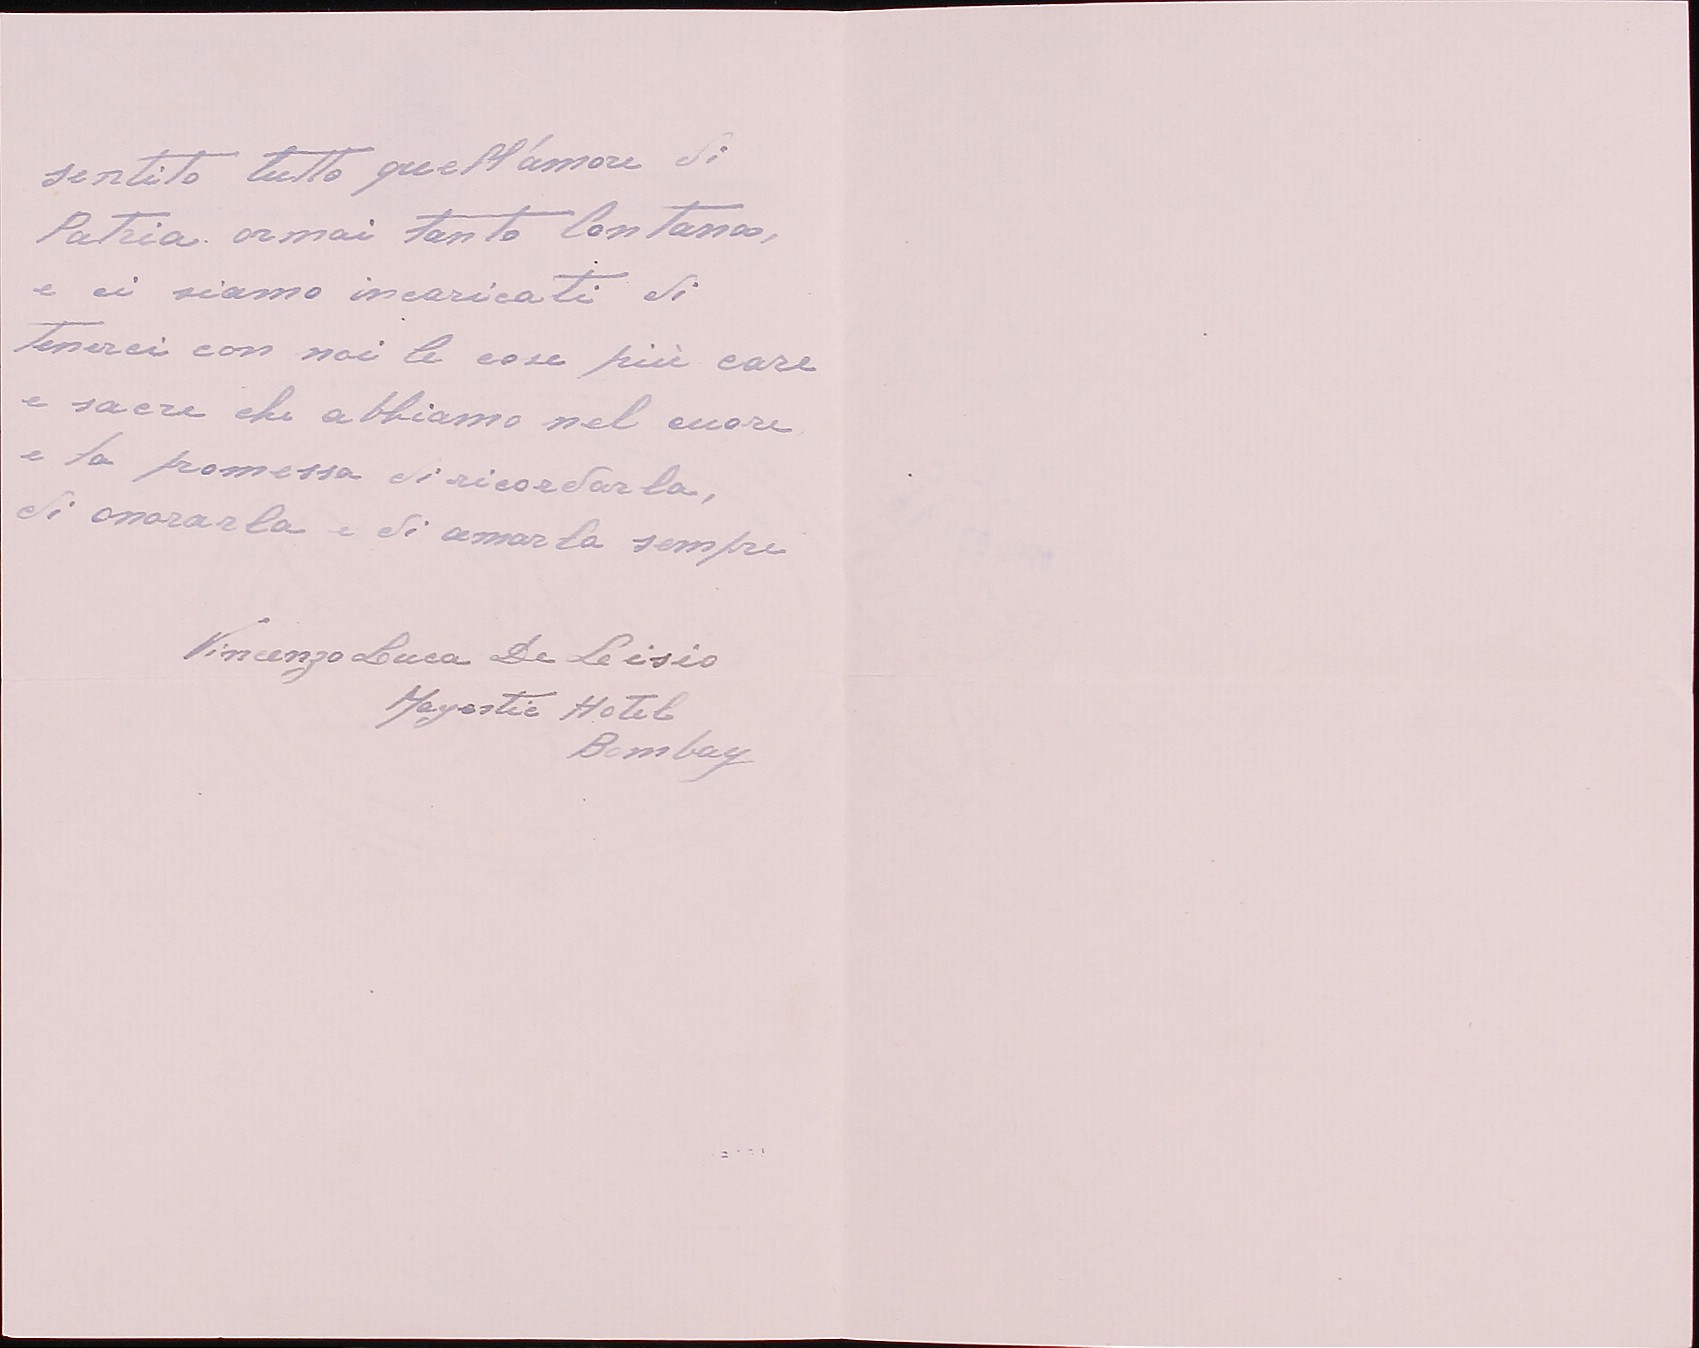 sentito tutto quell'amore di
Patria ormai tanto lontana,
e ci siamo incaricati di
tenerci con noi le cose più care
e sacre che abbiamo nel cuore
e la promessa di ricordarla,
di onorarla e di amarla sempre
Vincenzo Luca De Leisio
Mayestic Hotel
Bombay